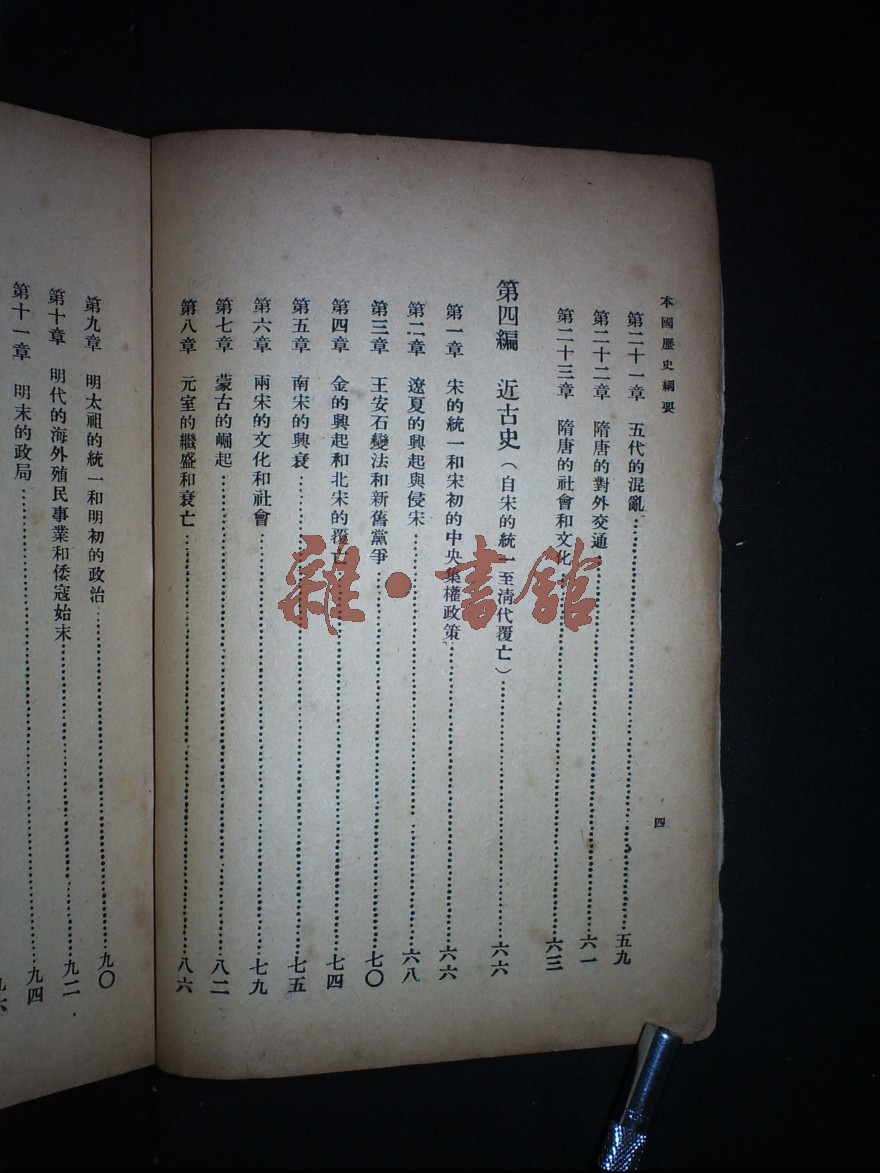 本國歷史綱要
四
第二十一章 五代的混亂 五九
第二十二章 隋唐的對外交通 六一
第二十三章 隋唐的社會和文化 六三
第四編 近古史（自宋的統一至清代覆亡） 六六
第一章 宋的統一和宋初的中央集權政策 六六
第二章 遼夏的興起與侵宋 六八
第三章 王安石變法和新舊黨爭 七〇
第四章 金的興起和北宋的覆亡 七四
第五章 南宋的興衰 七五
第六章 兩宋的文化和社會 七九
第七章 蒙古的崛起 八二
第八章 元室的繼盛和衰亡 八六
第九章 明太祖的統一和明初的政治 九〇
第十章 明代的海外殖民事業和倭寇始末 九二
第十一章 明末的政局 九四
雜·書館